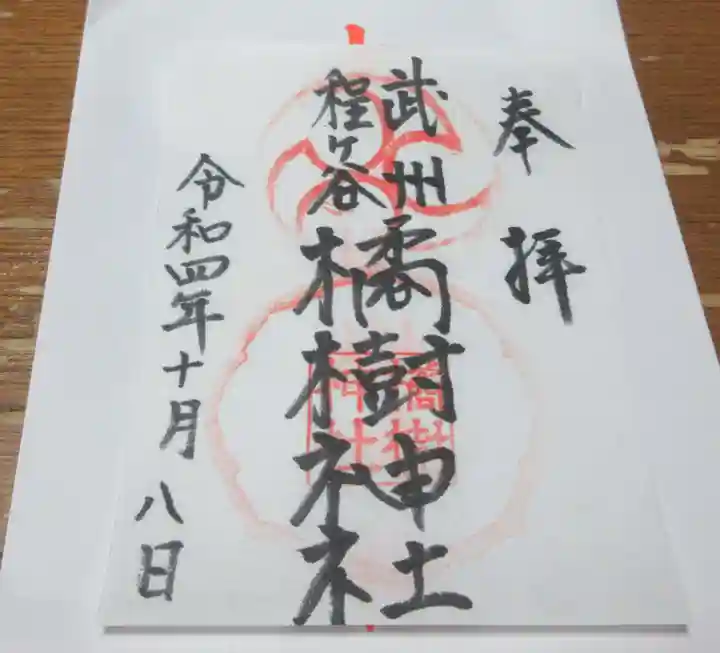 奉拝
武州
程ヶ谷
橘樹神社
橘樹
神社
令和四年十月八日